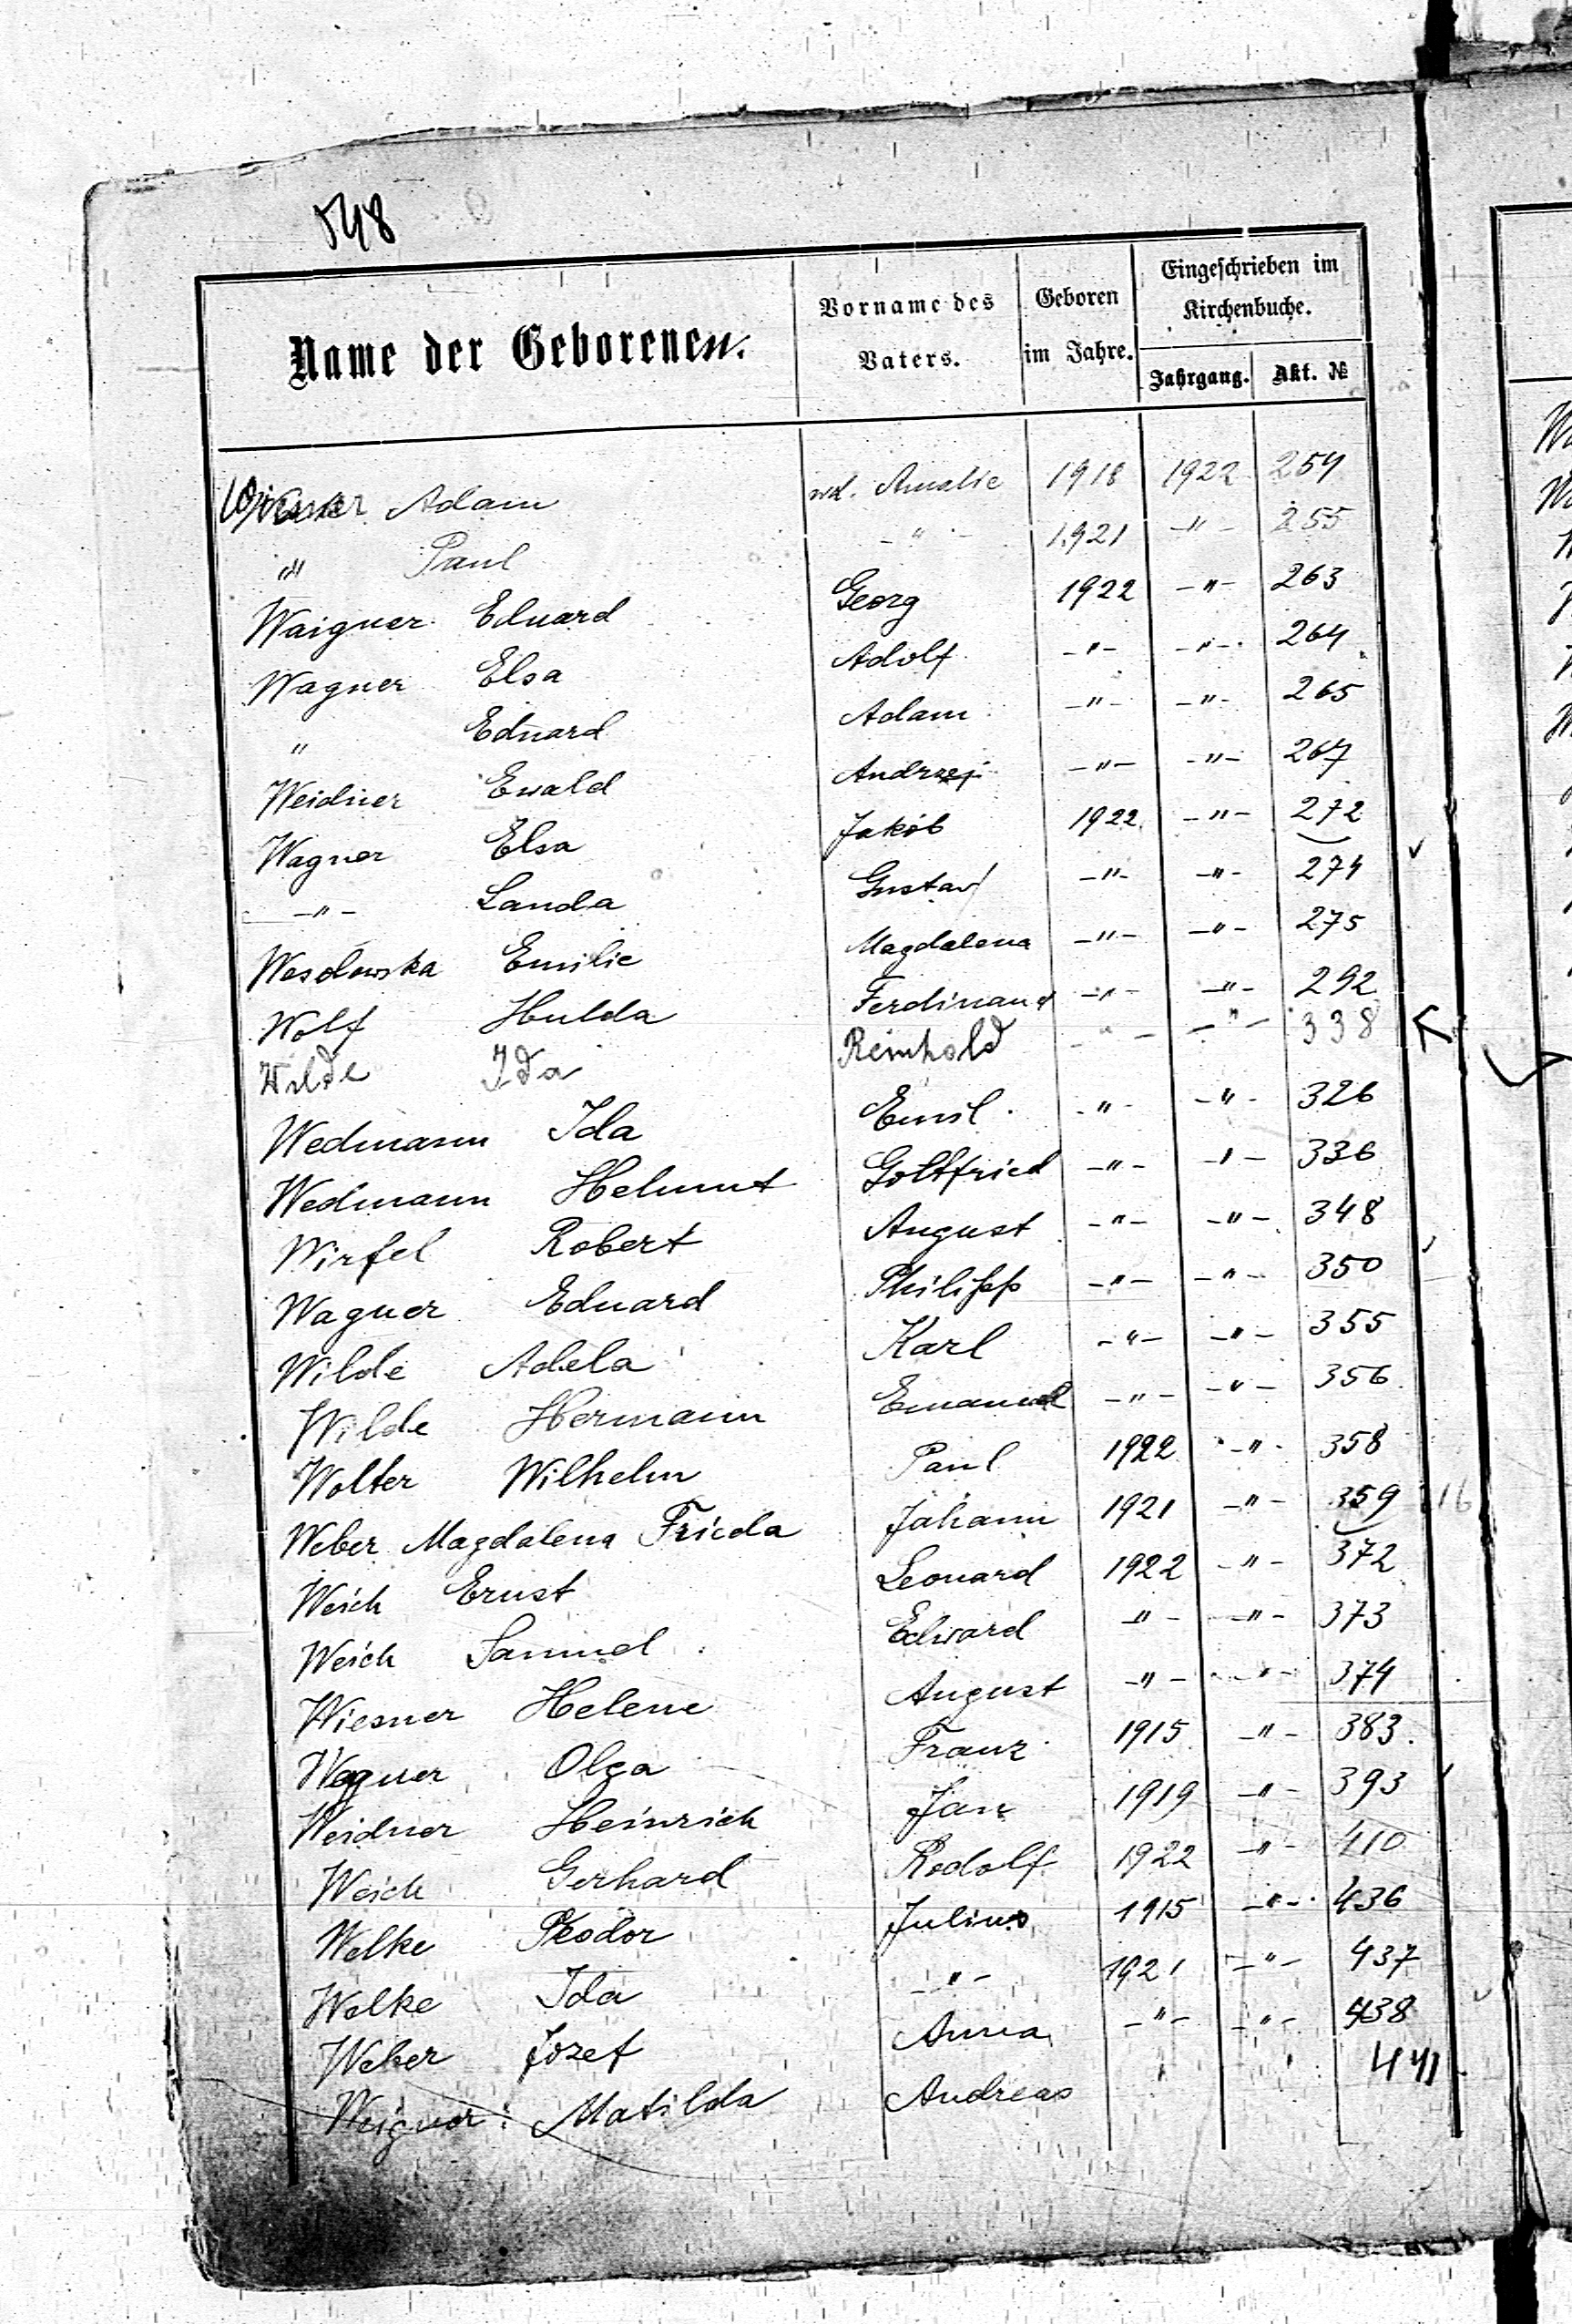 548
Name der Geborenen. Vorname des Vaters. Geboren im Jahre. Eingeschrieben im Kirchenbuche.
Jahrgang. Akt. №
Adam wd. Amalie 1918 1922 254
" Paul - " - 1921 -"- 255
Waigner Eduard Georg 1922 -"- 263
Wagner Elsa Adolf -"- -"- 264
" Eduard Adam -"- -"- 265
Weidner Ewald Andrzej -"- -"- 267
Wagner Elsa Jakob 1922 -"- 272
-"- Landa Gustav -"- -"- 274
Wesolowska Emilie Magdalena -"- -"- 275
Wolf Hulda Ferdinand -"- -"- 292
Wilde Ida Reinhold -"- -"- 338
Wedmann Ida Emil -"- -"- 326
Wedmann Helmut Gottfried -"- -"- 336
Wirfel Robert August -"- -"- 348
Wagner Eduard Philipp -"- -"- 350
Wilde Adela Karl -"- -"- 355
Wilde Hermann Emanuel -"- -"- 356
Wolter Wilhelm Paul 1922 -"- 358
Weber Magdalena Frieda Johann 1921 -"- 359 16
Weich Ernst Leonard 1922 -"- 372
Weich Samuel Edward -"- -"- 373
Wiesner Helene August -"- -"- 374
Wagner Olga Franz 1915 -"- 383.
Weidner Heinrich Jan 1919 -"- 393
Weich Gerhard Rodolf 1922 -"- 410
Welke Teodor Julius 1915 -"- 436
Welke Ida -"- 1921 -"- 437
Weber Jozef Anna -"- -"- 438
Weigner Matilda Andreas " " 441